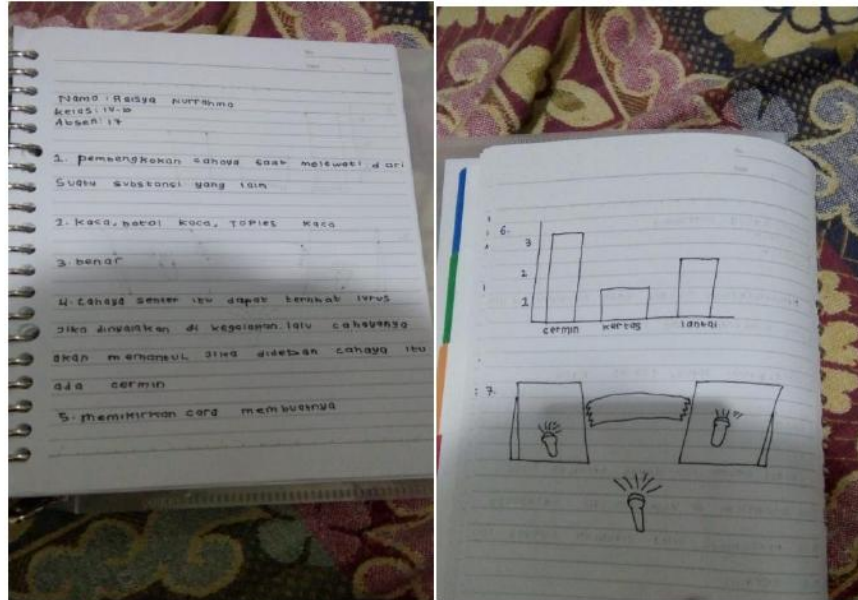 Nama : Raisya Nurrahma
Kelas : IV-B
Absen : 17
1. pembengkokan cahaya saat melewati dari
Suatu substansi yang lain
2. Kaca, botol kaca, TOPles kaca
3. benar
4. cahaya senter itu dapat terlihat lurus
jika dinyalakan di kegelapan. lalu cahayanya
akan memantul jika didepan cahaya itu
ada cermin
5. memikirkan cara membuatnya
6.
3
2
1
cermin kertas lantai
7.